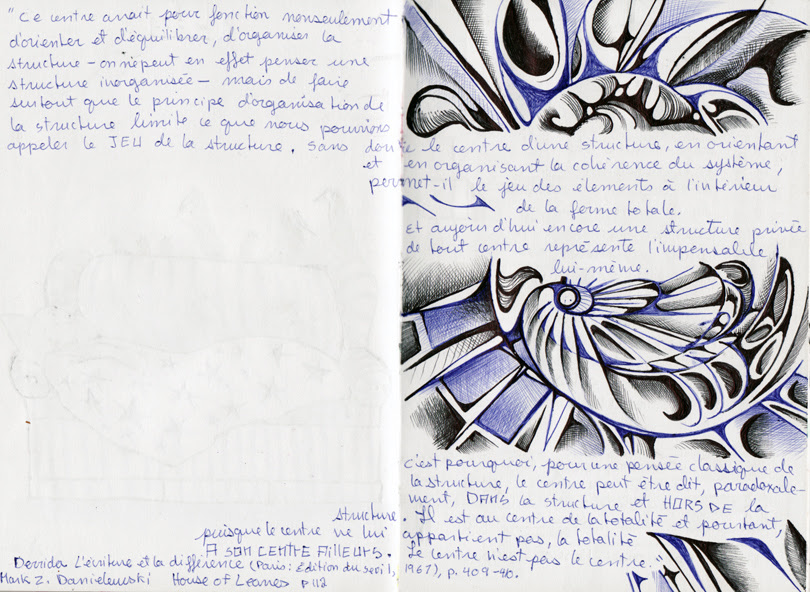 "Ce centre avait pour fonction nonseulement
d'orienter et d'équilibrer, d'organiser la
structure – on ne peut en effet penser une
structure inorganisée – mais de faire
surtout que le principe d'organisation de
la structure limite ce que nous pouvions
appeler le JEU de la structure. Sans doute le centre d'une structure, en orientant
et en organisant la cohérence du système,
permet-il le jeu des élements à l'intérieur
de la forme totale.
Et aujourd'hui encore une structure privée
de tout centre représente l'impensable
lui-même.
C'est pourquoi, pour une pensée classique de
la structure, le centre peut être dit, paradoxale-
ment, DANS la structure et HORS DE la
structure. Il est au centre de la totalité et pourtant,
puisque le centre ne lui appartient pas, la totalité
A SON CENTRE AILLEURS. Le centre n'est pas le centre."
Derrida L'écriture et la différence (Paris: Edition du seuil, 1967), p. 409-410.
Mark Z. Danielewski House of Leaves p 112